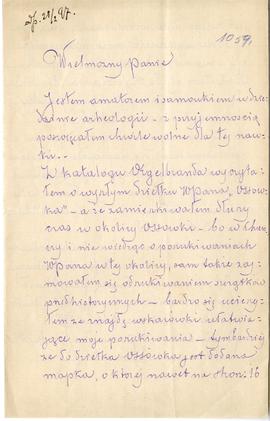 Wp. 21/2 97.
1059.
Wielmożny Panie
Jestem amatorem i samoukiem w dzie-
dzinie archeologii - z przyjemnością
poświęcałem chwile wolne dla tej nau-
ki..
Z katalogu Orgelbranda wyczyta-
łem o wyszłym dziełku WPana „Ossów-
ka" - a że zamieszkiwałem dłuższy
czas w okolicy Ossówki - bo w
i nie wiedząc o poszukiwaniach
WPana w tej okolicy, sam także zaj-
mowałem się odszukiwaniem szczątków
przedhistorycznych - bardzo się ucieszy-
łem że znajdę wskazówki ułatwia-
jące moje poszukiwania - tymbardziej
że do dziełka Ossówka jest dodana
mapka, o której nawet na stron: 16